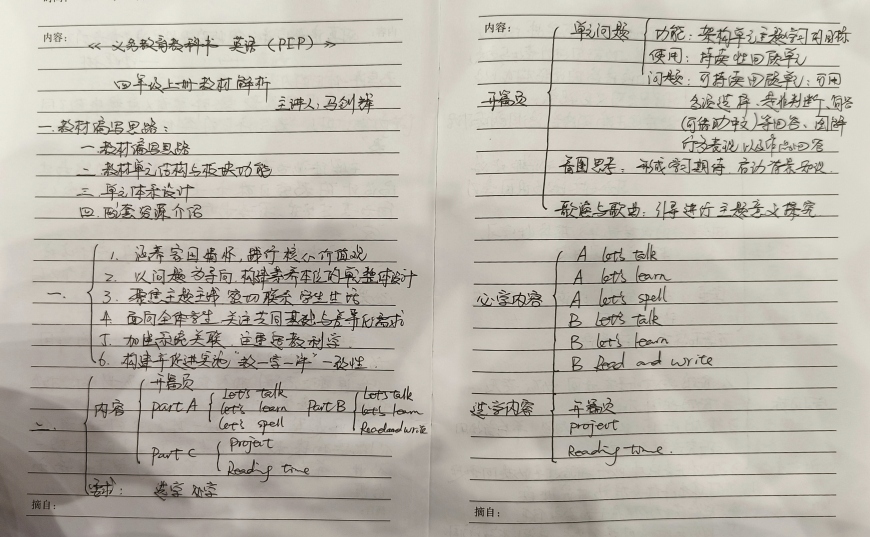 内容:
《义务教育教科书 英语 (PEP)》
四年级上册教材解析
主讲人:马剑辉
一.教材编写思路:
一.教材编写思路
二.教材单元结构与板块功能
三.单元体系设计
四.配套资源介绍
一.
1. 涵养家国情怀,践行核心价值观
2. 以问题为导向 构建素养本位的单元整体设计
3. 聚焦主题主线 密切联系学生生活
4. 面向全体学生,关注共同基础与差异化需求
5. 加强系统关联,注重
6. 构建并促进实施"教—学—评"一致性.
二.
内容
开篇页
Part A
Let's talk
Let's learn
Let's spell
Part B
Let's talk
Let's learn
Read and write
Part C
Project
Reading time
要求: 选学 必学
摘自:
内容:
开篇页
单元问题
功能:架构单元主题学习的目标
使用:持续性回顾单元
问题:可持续回顾单元;可用
多项选择、是非判断、简答
(可借助中文)等回答、图解
行为表现以及作品回答
看图思考:形成学习期待,启动背景知识.
歌谣与歌曲:引导进行主题意义探究
必学内容
A Let's talk
A Let's learn
A Let's spell
B Let's talk
B Let's learn
B Read and write
选学内容
开篇页
project
Reading time.
摘自: